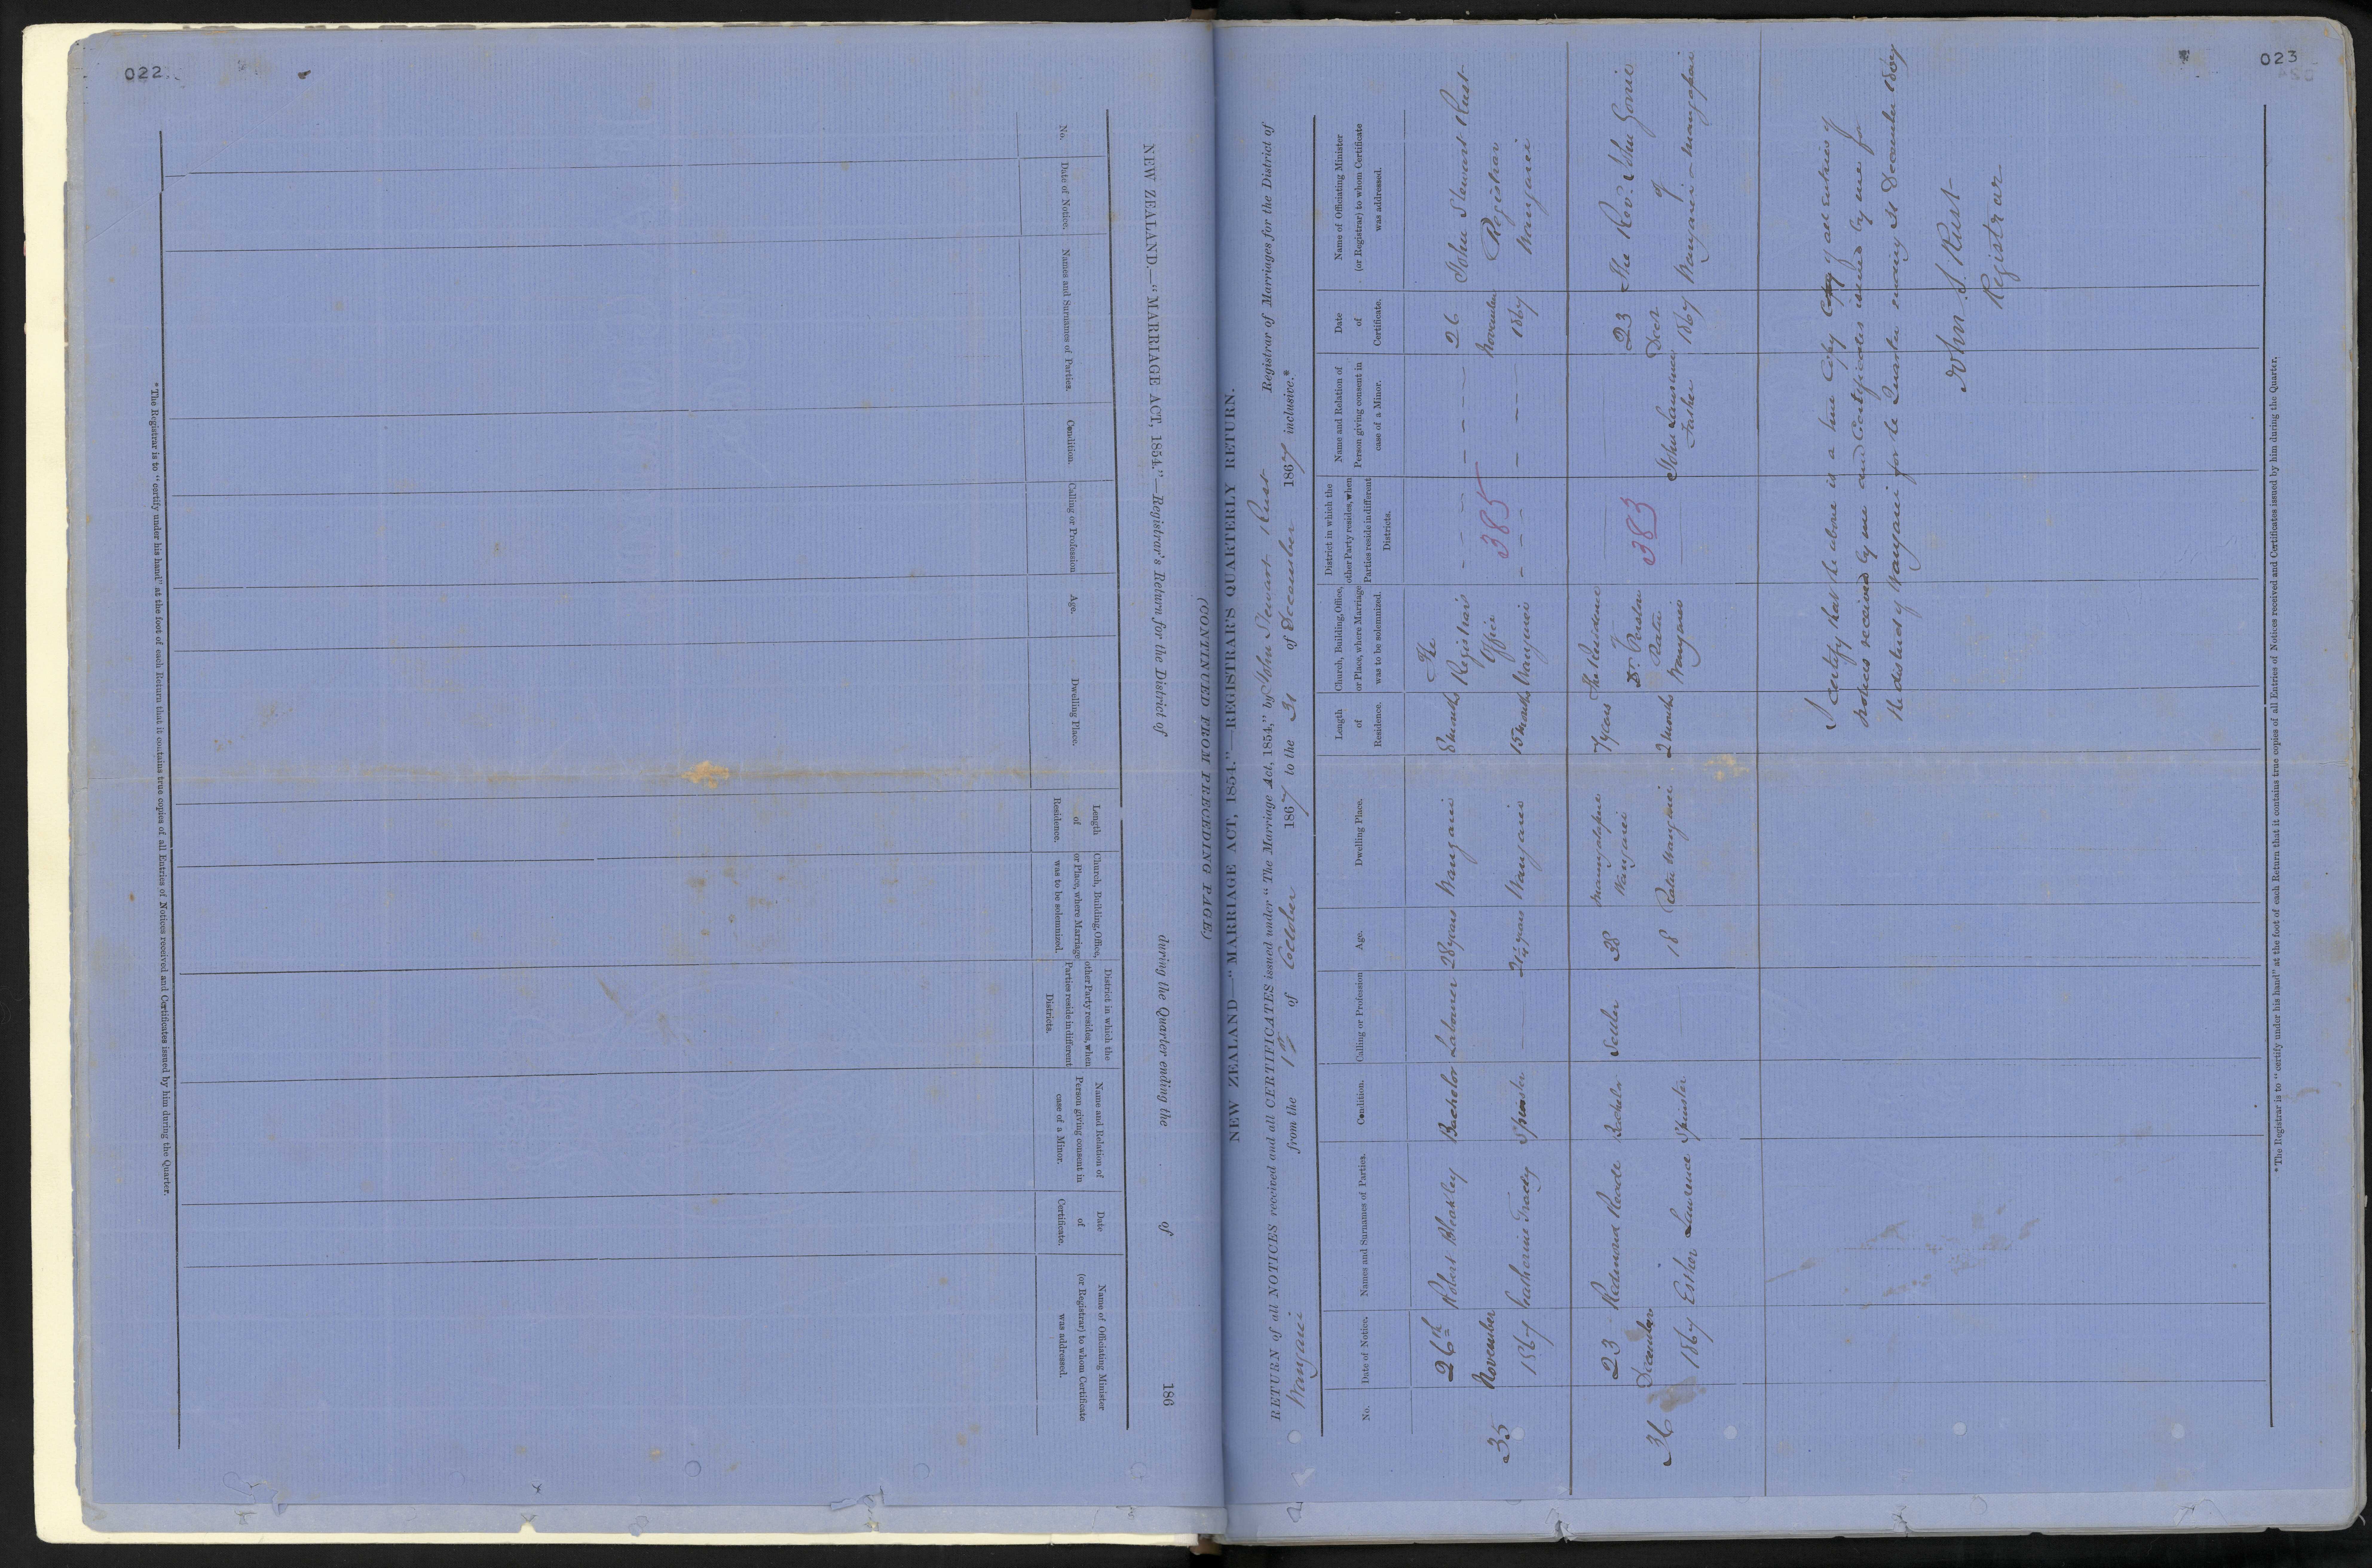 022
NEW ZEALAND.—"MARRIAGE ACT, 1854."—Registrar's Return for the District of during the Quarter ending the of 186
(CONTINUED FROM PRECEDING PAGE.)
No.
Date of Notice.
Names and Surnames of Parties.
Condition.
Calling or Profession
Age.
Dwelling Place.
Length
of
Residence.
Church, Building, Office,
or Place, where Marriage
was to be solemnized.
District in which the
other Party resides, when
Parties reside in different
Districts.
Name and Relation of
Person giving consent in
case of a Minor.
Date
of
Certificate.
Name of Officiating Minister
(or Registrar) to whom Certificate
was addressed.
*The Registrar is to "certify under his hand" at the foot of each Return that it contains true copies of all Entries of Notices received and Certificates issued by him during the Quarter.
023
NEW ZEALAND—"MARRIAGE ACT, 1854."—REGISTRAR'S QUARTERLY RETURN.
RETURN of all NOTICES received and all CERTIFICATES issued under "The Marriage Act, 1854," by John Stewart Rust Registrar of Marriages for the District of
Wanganui from the 1st of October 1867 to the 31 of December 1867 inclusive.*
No.
Date of Notice.
Names and Surnames of Parties.
Condition.
Calling or Profession
Age.
Dwelling Place.
Length
of
Residence.
Church, Building, Office,
or Place, where Marriage
was to be solemnized.
District in which the
other Party resides, when
Parties reside in different
Districts.
Name and Relation of
Person giving consent in
case of a Minor.
Date
of
Certificate.
Name of Officiating Minister
(or Registrar) to whom Certificate
was addressed.
35
26th
November
1867
Robert Bleakley
Catherine Tracey
Bachelor
Spinster
Labourer
28 years
24 years
Wanganui
Wanganui
8 months
15 months
The
Registrar's
Office
Wanganui
385
26
November
1867
John Stewart Rust
Registrar
Wanganui
36
23
December
1867
Redmond Reade
Esther Lawrence
Bachelor
Spinster
Settler
38
18
Wanganui
Ratu Wanganui
7 years
2 months
The Residence
of
Dr.
Ratu
Wanganui
383
John Lawrence
Father
23
Decr
1867
The Revd. John Gorrie
of
Wanganui
I certify that the above is a true Copy of all entries of
notices received by me and Certificates issued by me for
the district of Wanganui for the Quarter ending 31 December 1867
John S. Rust
Registrar
*The Registrar is to "certify under his hand" at the foot of each Return that it contains true copies of all Entries of Notices received and Certificates issued by him during the Quarter.